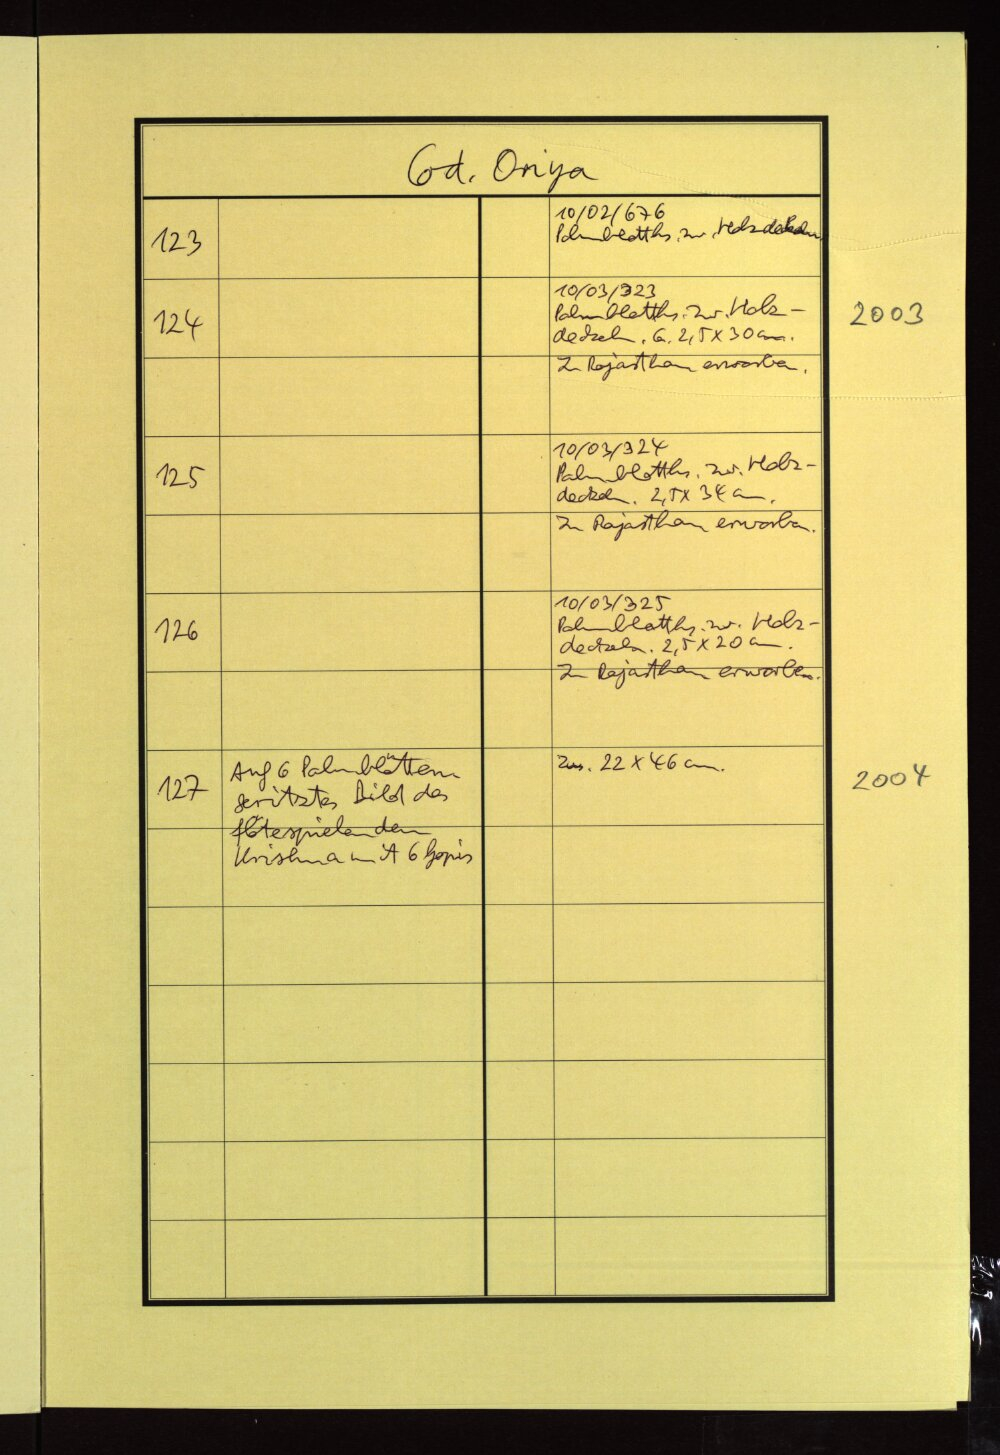 Cod. Oriya
123
10/02/676
Palmblatths. zw. Holzdeckeln
124
10/03/323
Palmblatths. zw. Holz-
deckeln. Ca. 2,5 x 30 cm.
In Rajasthan erworben.
2003
125
10/03/324
Palmblatths. zw. Holz-
deckeln. 2,5 x 34 cm.
In Rajasthan erworben.
126
10/03/325
Palmblatths. zw. Holz-
deckeln. 2,5 x 20 cm.
In Rajasthan erworben.
127
Auf 6 Palmblättern
geritztes Bild des
flötespielenden
Krishna mit 6 Gopis
22 x 46 cm.
2004